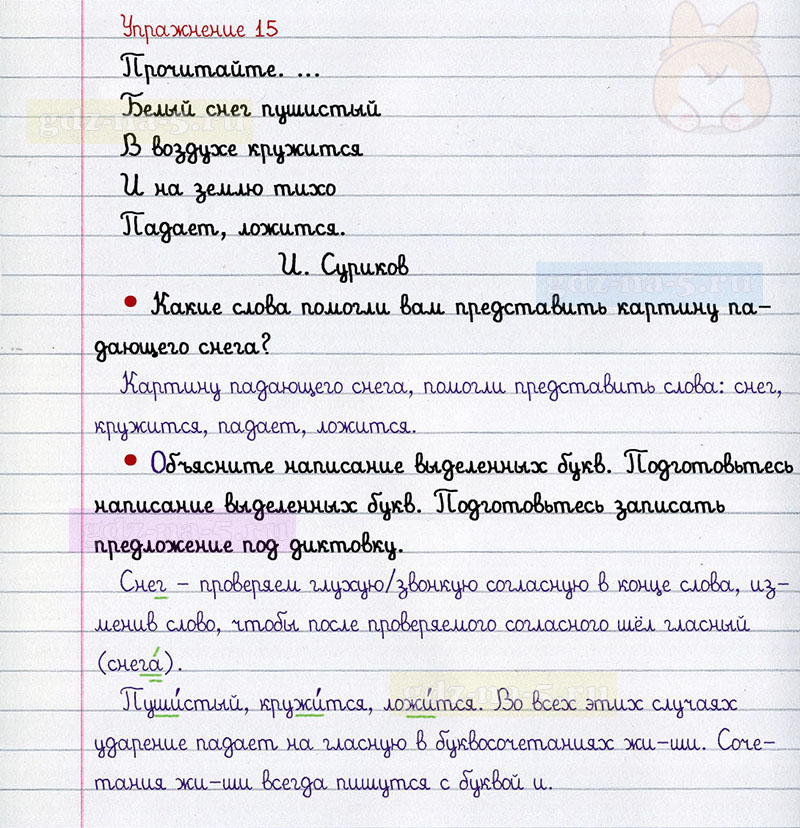 Упражнение 15
Прочитайте. ...
Белый снег пушистый
gdz-na-5.ru
В воздухе кружится
И на землю тихо
Падает, ложится.
И. Суриков
gdz-na-5.ru
• Какие слова помогли вам представить картину па-
дающего снега?
Картину падающего снега, помогли представить слова: снег,
кружится, падает, ложится.
• Объясните написание выделенных букв. Подготовьтесь
написание выделенных букв. Подготовьтесь записать
gdz-na-5.ru
предложение под диктовку.
Снег – проверяем глухую/звонкую согласную в конце слова, из-
менив слово, чтобы после проверяемого согласного шёл гласный
(снега́).
gdz-na-5.ru
Пуши́стый, кружи́тся, ложи́тся. Во всех этих случаях
ударение падает на гласную в буквосочетаниях жи-ши. Соче-
тания жи-ши всегда пишутся с буквой и.